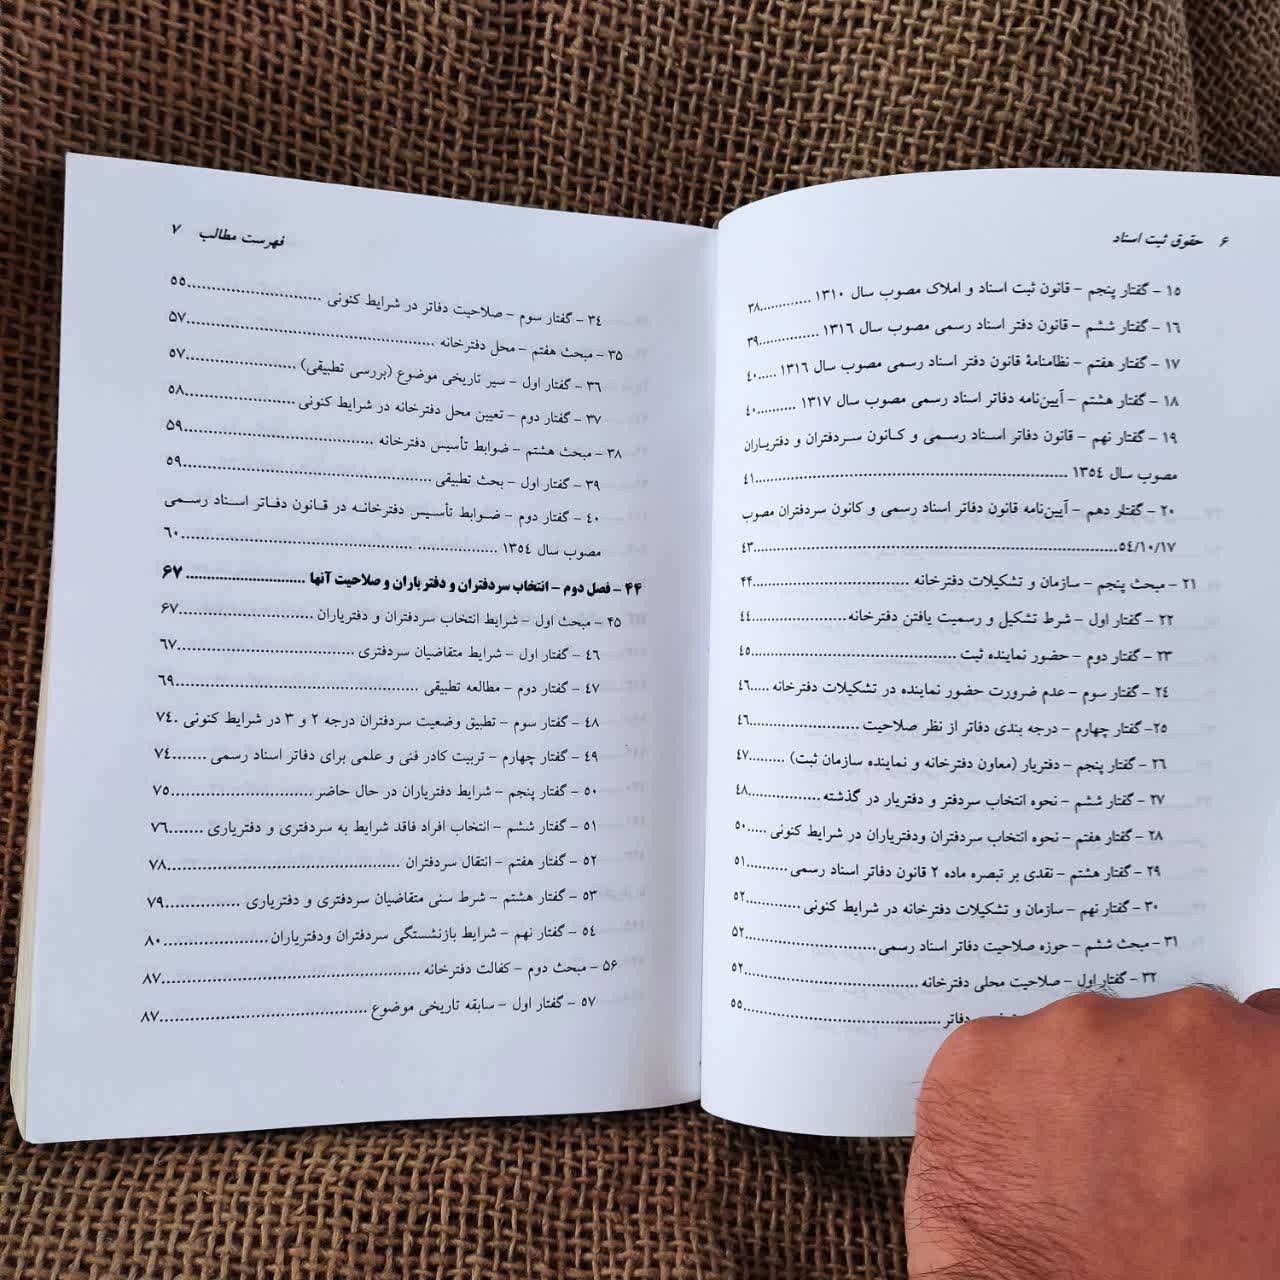 ۶ حقوق ثبت اسناد
۱۵ - گفتار پنجم - قانون ثبت اسناد و املاک مصوب سال ۱۳۱۰ ............۳۸
۱۶ - گفتار ششم - قانون دفتر اسناد رسمی مصوب سال ۱۳۱۶ ...............۳۹
۱۷ - گفتار هفتم - نظامنامهٔ قانون دفتر اسناد رسمی مصوب سال ۱۳۱۶ .....۴۰
۱۸ - گفتار هشتم - آیین‌نامه دفاتر اسناد رسمی مصوب سال ۱۳۱۷ ..........۴۰
۱۹ - گفتار نهم - قانون دفاتر اسناد رسمی و کانون سردفتران و دفتریاران
مصوب سال ۱۳۵۴ ..............................................................۴۱
۲۰ - گفتار دهم - آیین‌نامه قانون دفاتر اسناد رسمی و کانون سردفتران مصوب
۵۴/۱۰/۱۷......................................................................۴۳
۲۱ - مبحث پنجم - سازمان و تشکیلات دفترخانه ..............................۴۴
۲۲ - گفتار اول - شرط تشکیل و رسمیت یافتن دفترخانه....................۴۴
۲۳ - گفتار دوم - حضور نماینده ثبت ........................................۴۵
۲۴ - گفتار سوم - عدم ضرورت حضور نماینده در تشکیلات دفترخانه .....۴۶
۲۵- گفتار چهارم - درجه بندی دفاتر از نظر صلاحیت ......................۴۶
۲۶ - گفتار پنجم - دفتریار (معاون دفترخانه و نماینده سازمان ثبت) .........۴۷
۲۷ - گفتار ششم - نحوه انتخاب سردفتر و دفتریار در گذشته ................۴۸
۲۸ - گفتار هفتم - نحوه انتخاب سردفتران ودفتریاران در شرایط کنونی .....۵۰
۲۹ - گفتار هشتم - نقدی بر تبصره ماده ۲ قانون دفاتر اسناد رسمی ..........۵۱
۳۰ - گفتار نهم - سازمان و تشکیلات دفترخانه در شرایط کنونی ............۵۲
۳۱ - مبحث ششم - حوزه صلاحیت دفاتر اسناد رسمی .........................۵۲
۳۲ - گفتار اول - صلاحیت محلی دفترخانه ...................................۵۲
دفاتر.........................................۵۵
فهرست مطالب ۷
۳۴ - گفتار سوم - صلاحیت دفاتر در شرایط کنونی ...........................۵۵
۳۵ - مبحث هفتم - محل دفترخانه ................................................۵۷
۳۶ - گفتار اول - سیر تاریخی موضوع (بررسی تطبیقی) ......................۵۷
۳۷ - گفتار دوم - تعیین محل دفترخانه در شرایط کنونی......................۵۸
۳۸ - مبحث هشتم - ضوابط تأسیس دفترخانه .....................................۵۹
۳۹ - گفتار اول - بحث تطبیقی ..................................................۵۹
۴۰ - گفتار دوم - ضوابط تأسیس دفترخانه در قانون دفاتر اسناد رسمی
مصوب سال ۱۳۵۴ ................ ...............................................۶۰
۴۴ - فصل دوم - انتخاب سردفتران و دفتریاران و صلاحیت آنها ........................۶۷
۴۵ - مبحث اول - شرایط انتخاب سردفتران و دفتریاران .........................۶۷
۴۶ - گفتار اول - شرایط متقاضیان سردفتری ...................................۶۷
۴۷ - گفتار دوم - مطالعه تطبیقی ................................................۶۹
۴۸ - گفتار سوم - تطبیق وضعیت سردفتران درجه ۲ و ۳ در شرایط کنونی .۷۴
۴۹ - گفتار چهارم - تربیت کادر فنی و علمی برای دفاتر اسناد رسمی .......۷۴
۵۰ - گفتار پنجم - شرایط دفتریاران در حال حاضر ............................۷۵
۵۱ - گفتار ششم - انتخاب افراد فاقد شرایط به سردفتری و دفتریاری .......۷۶
۵۲ - گفتار هفتم - انتقال سردفتران ..............................................۷۸
۵۳ - گفتار هشتم - شرط سنی متقاضیان سردفتری و دفتریاری ...............۷۹
۵۴ - گفتار نهم - شرایط بازنشستگی سردفتران ودفتریاران.....................۸۰
۵۶ - مبحث دوم - کفالت دفترخانه ................................................۸۷
۵۷ - گفتار اول - سابقه تاریخی موضوع ..........................................۸۷